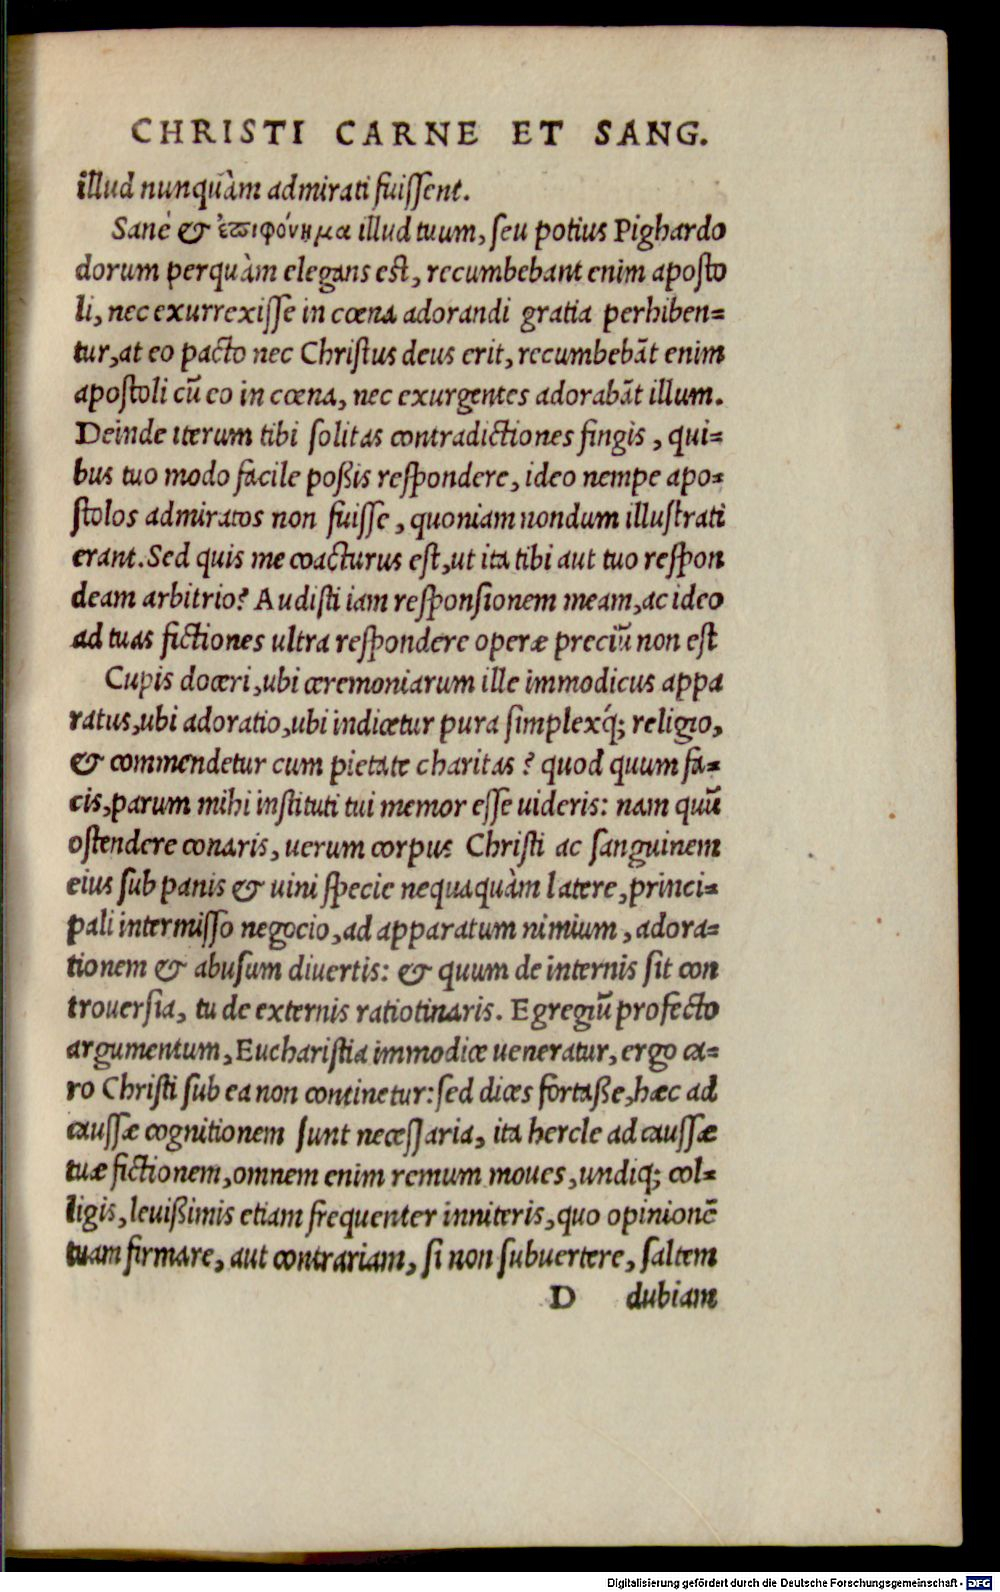 CHRISTI CARNE ET SANG.
illud nunquàm admirati fuissent.
Sanè & ἐπιφόνημα illud tuum, seu potius Pighardo
dorum perquàm elegans est, recumbebant enim aposto
li, nec exurrexisse in cœna adorandi gratia perhiben=
tur, at eo pacto nec Christus deus erit, recumbebãt enim
apostoli cũ eo in cœna, nec exurgentes adorabãt illum.
Deinde iterum tibi solitas contradictiones fingis, qui=
bus tuo modo facile poßis respondere, ideo nempe apo=
stolos admiratos non fuisse, quoniam nondum illustrati
erant. Sed quis me coacturus est, ut ita tibi aut tuo respon
deam arbitrio? Audisti iam responsionem meam, ac ideo
ad tuas fictiones ultra respondere operæ preciũ non est
Cupis doceri, ubi ceremoniarum ille immodicus appa
ratus, ubi adoratio, ubi indicetur pura simplexq́; religio,
& commendetur cum pietate charitas? quod quum fa=
cis, parum mihi instituti tui memor esse uideris: nam quũ
ostendere conaris, uerum corpus Christi ac sanguinem
eius sub panis & uini specie nequaquàm latere, princi=
pali intermisso negocio, ad apparatum nimium, adora=
tionem & abusum diuertis: & quum de internis sit con
trouersia, tu de externis ratiotinaris. Egregiũ profecto
argumentum, Eucharistia immodice ueneratur, ergo ca=
ro Christi sub ea non continetur: sed dices fortaße, hæc ad
caussæ cognitionem sunt necessaria, ita hercle ad caussæ
tuæ fictionem, omnem enim remum moues, undiq; col=
ligis, leuißimis etiam frequenter inniteris, quo opinionẽ
tuam firmare, aut contrariam, si non subuertere, saltem
D dubiam
Digitalisierung gefördert durch die Deutsche Forschungsgemeinschaft - DFG